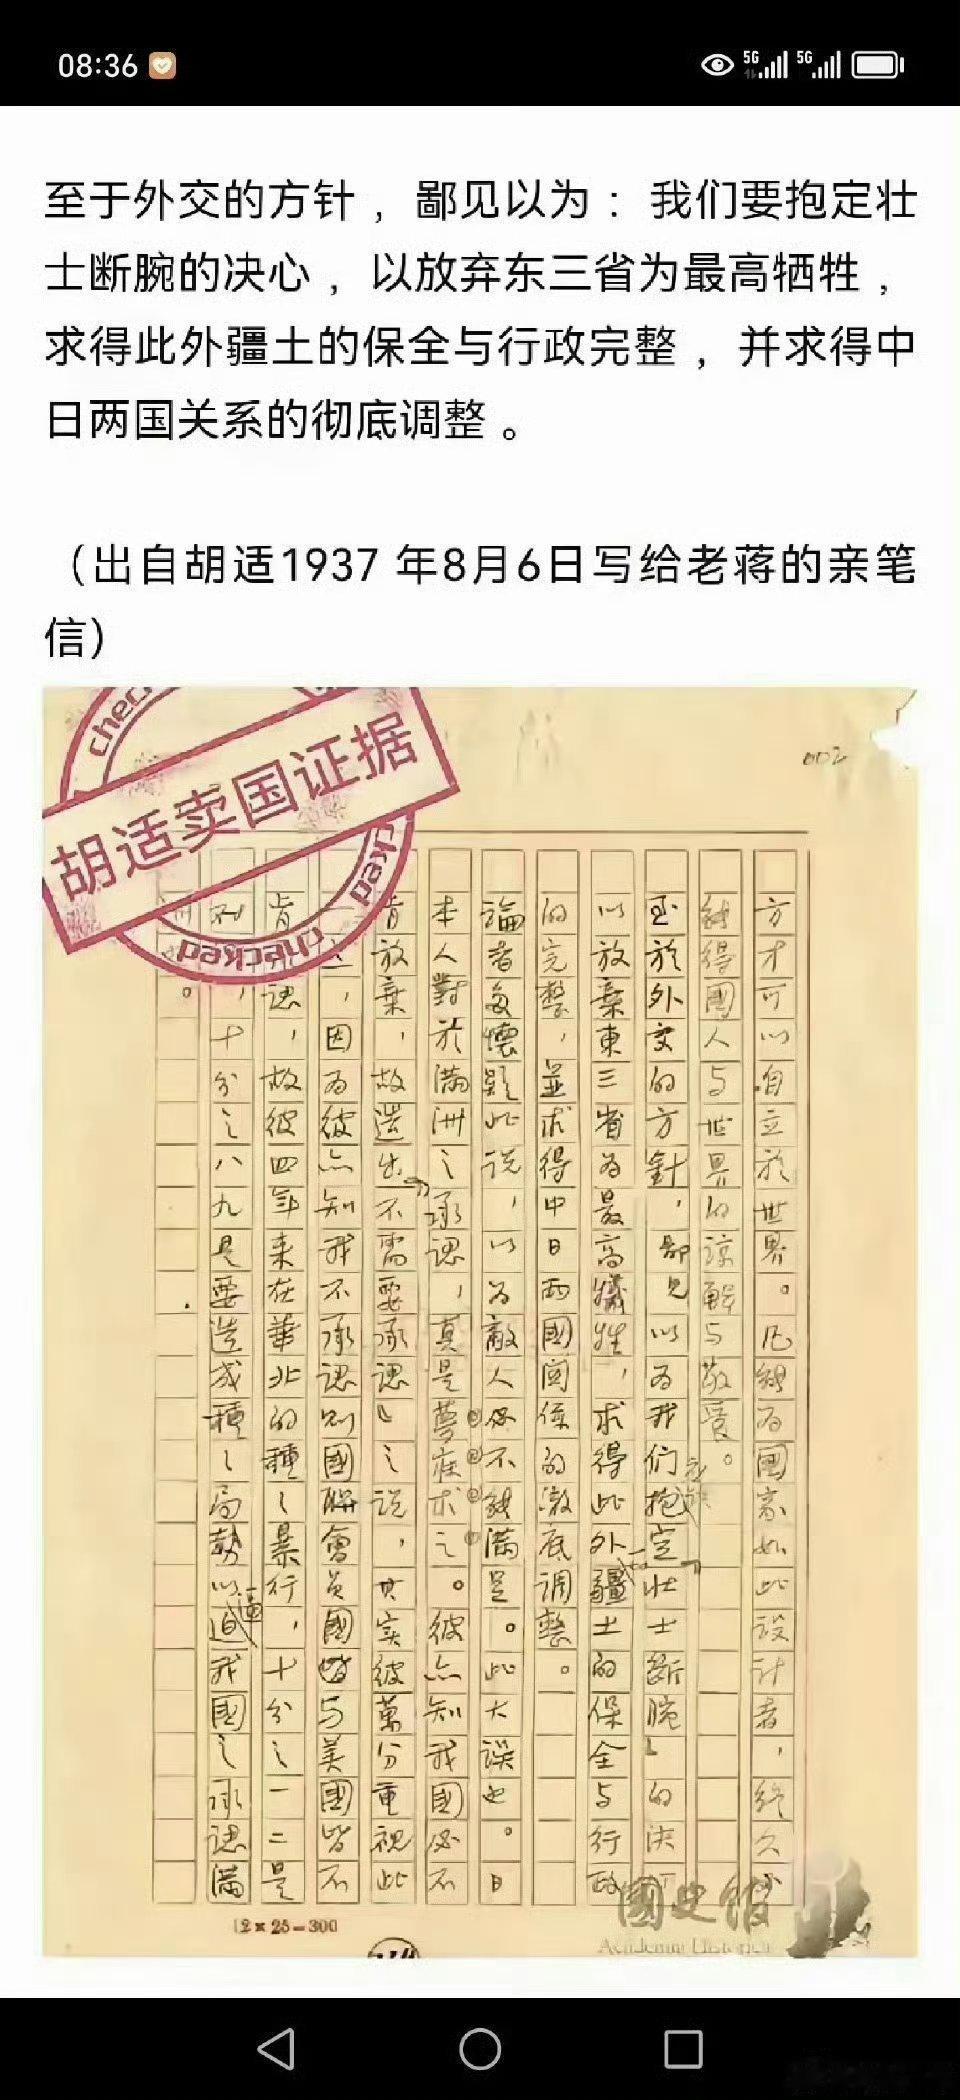 08:36
5G 5G
至于外交的方针，鄙见以为：我们要抱定壮
士断腕的决心，以放弃东三省为最高牺牲，
求得此外疆土的保全与行政完整，并求得中
日两国关系的彻底调整。
（出自胡适1937 年8月6日写给老蒋的亲笔
信）
checked
胡适卖国证据
checked
checked
002
方才可以自立於世界。凡能為國家如此設計者，終久必
能得國人与世界的諒解与敬愛。
至於外交的方針，鄙見以為我们抱定「壯士斷腕」的決
以放棄東三省為最高犧牲，求得此外疆土的保全与行政
的完整，並求得中日两國関係的澈底調整。
論者多懷疑此說，以為敵人必不能滿足。此大誤也。日
本人對於滿洲之承認，真是夢寐求之。彼亦知我國必不
肯放棄，故造出「不需要承認」之說，其实彼萬分重視此
，因為彼亦知我不承認則國聯會員國皆与美國皆不
肯認，故彼四年來在華北的種種暴行，十分之一二是
，十分之八九是要造成種種局勢以逼迫我國之承認滿
洲。
12×25=300
國史館
Academia Historica